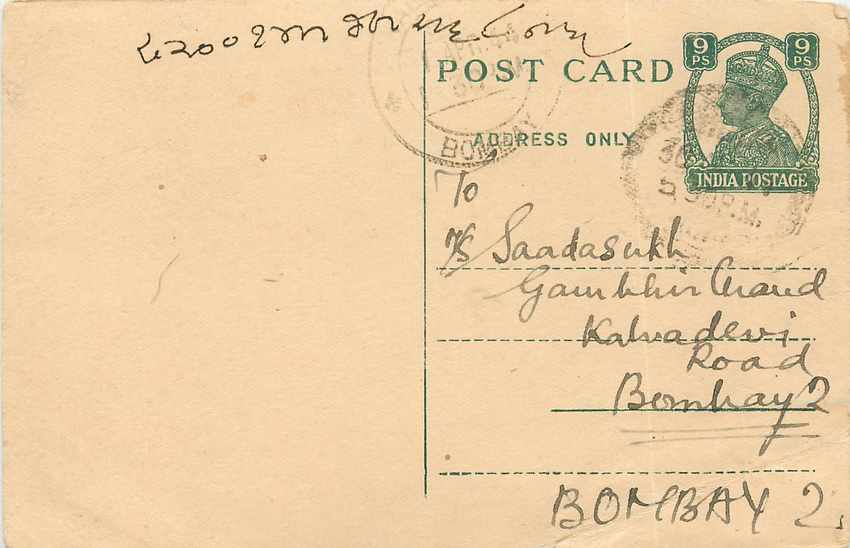 POST CARD
9 PS
9 PS
ADDRESS ONLY
INDIA POSTAGE
BOMBAY
30 P.M.
To
M/S Saadasukh
Gambhir Chand
Kalvadevi
Road
Bombay 2
BOMBAY 2.